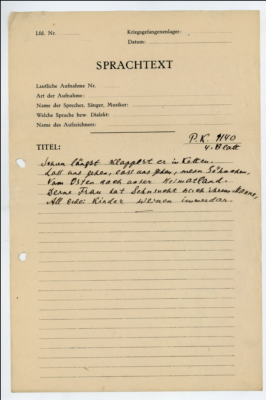 Lfd. Nr.
Kriegsgefangenenlager:
Datum:
SPRACHTEXT
Lautliche Aufnahme Nr.
Art der Aufnahme:
Name der Sprecher, Sänger, Musiker:
Welche Sprache bzw. Dialekt:
Name des Aufzeichners:
P.K. 1140
4. Blatt
TITEL:
Schon längst klappert er in Ketten.
Lass uns gehen, lass uns gehen, mein Söhnchen,
Vom Osten nach unser Heimatland.
Deine Frau hat Sehnsucht nach ihrem Manne,
All Kinder weinen immerdar.